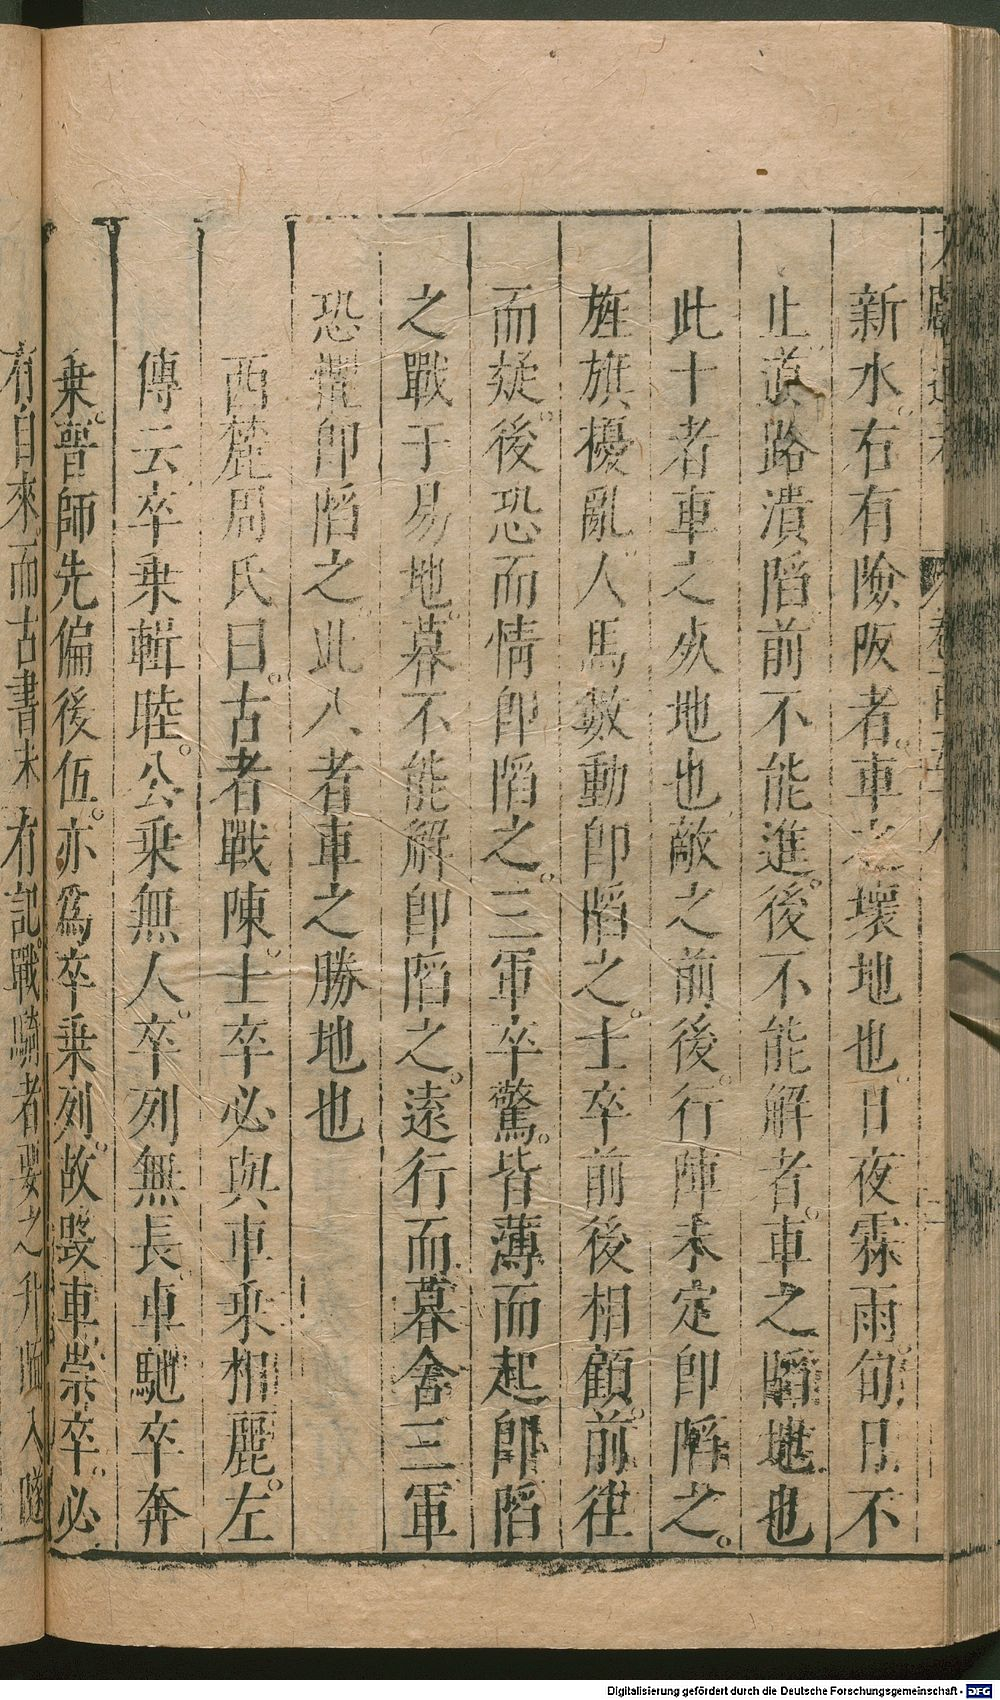 新水右有險阪者車之壞地也日夜霖雨旬日不
止道路潰陷前不能進後不能解者車之陷地也
此十者車之死地也敵之前後行陣未定即陷之
旌旗擾亂人馬數動即陷之士卒前後相顧前往
而疑後恐而情即陷之三軍卒驚皆薄而起即陷
之戰于易地暮不能解即陷之遠行而暮舍三軍
恐懼即陷之此八者車之勝地也
西麓周氏曰古者戰陳士卒必與車乘相麗左
傳云卒乘輯睦公乘無人卒列無長車馳卒奔
乘晉師先偏後伍亦為卒乘列故毀車崇卒必
有自來而古書未有記戰騎者要之升陑入隧
Digitalisierung gefördert durch die Deutsche Forschungsgemeinschaft - DFG